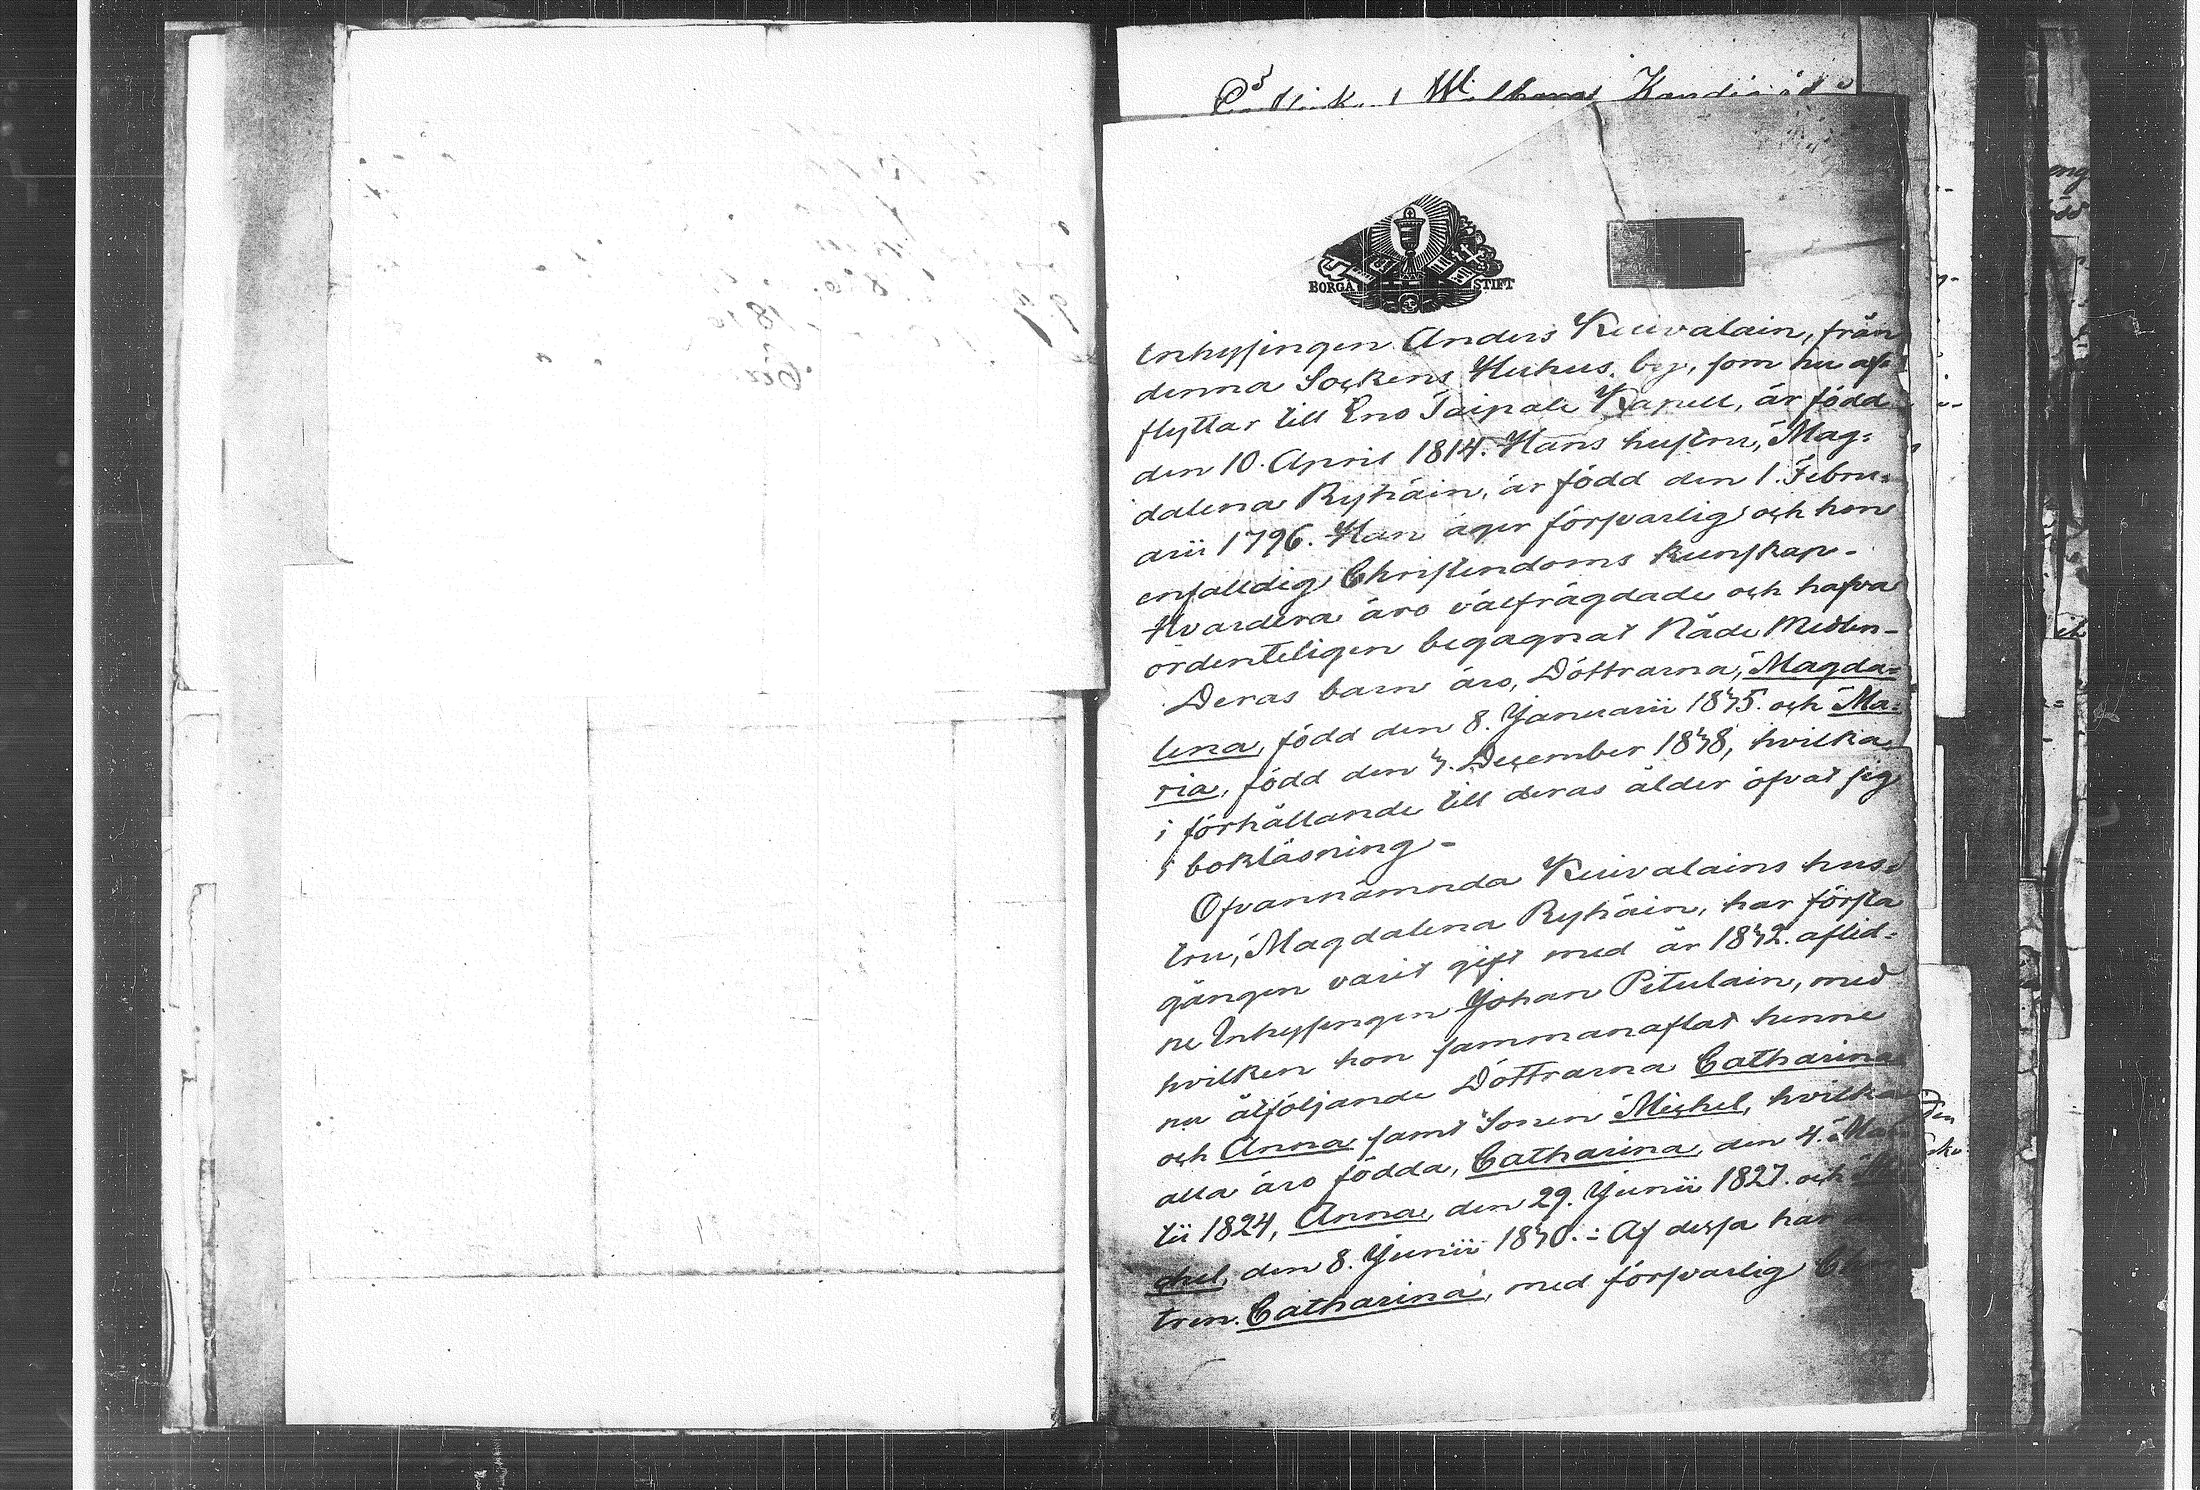 BORGÅ STIFT
Inhysingen Anders Kuivalain, från
denna Sockens Huhus by, som nu af=
flyttar till Eno Taipale Kapell, är född
den 10. April 1814. Hans hustru, Mag=
dalena Ryhäin, är född den 1. Febru=
arii 1796. Han äger försvarlig och hon
enfalldig Christendoms kunskap-
Hvardera äro välfrägdade och hafva
ordenteligen begagnat Nåde Medlen-
Deras barn äro, Döttrarna, Magda=
lena, född den 8. Januarii 1835. och Ma=
ria, född den 3. December 1838, hvilka
i förhållande till deras ålder öfvat sig
i bokläsning-
Ofvannämnda Kuivalains hus=
tru, Magdalena Ryhäin, har första
gången varit gift med år 1832. aflid=
ne Inhysingen Johan Pitulain, med
hvilken hon sammanaflat henne
nu åtföljande Döttrarna Catharina
och Anna samt Sonen Michel, hvilka
alla äro födda, Catharina, den 4. Mar
tii 1824, Anna, den 29. Junii 1827. och
chel, den 8. Junii 1830.- Af dessa har
tren. Catharina, med försvarlig